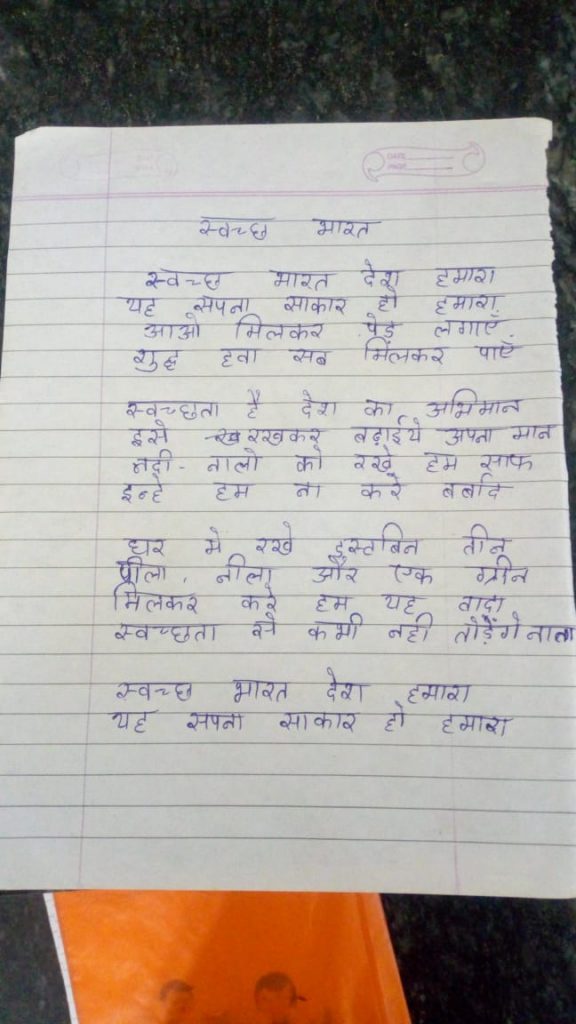 स्वच्छ भारत
स्वच्छ भारत देश हमारा
यह सपना साकार हो हमारा
आओ मिलकर पेड़ लगाएँ
शुद्ध हवा सब मिलकर पाएँ
स्वच्छता है देश का अभिमान
इसे रखकर बढ़ाईये अपना मान
नदी - नालो को रखे हम साफ
इन्हे हम ना करे बर्बाद
घर मे रखे डस्टबिन तीन
पीला, नीला और एक ग्रीन
मिलकर करे हम यह वादा
स्वच्छता से कभी नही तोड़ेंगे नाता
स्वच्छ भारत देश हमारा
यह सपना साकार हो हमारा